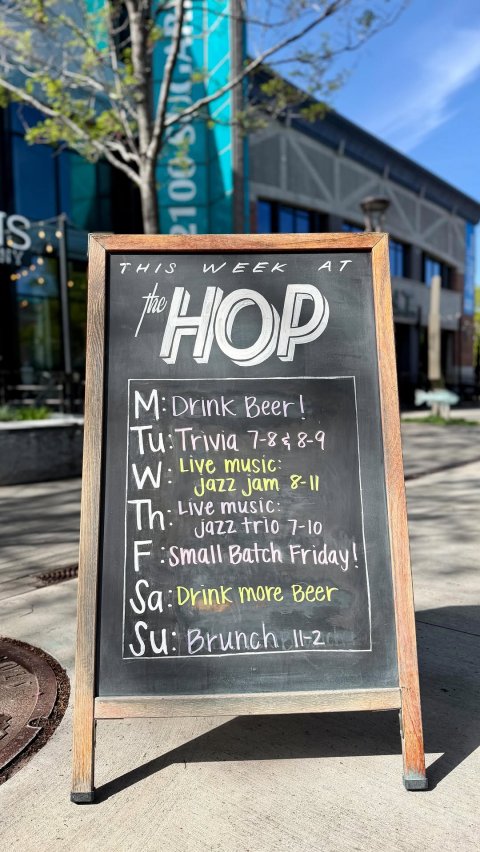 2100 SUGAR
IS
NY
THIS WEEK AT
the HOP
M: Drink Beer!
Tu: Trivia 7-8 & 8-9
W: Live music:
jazz jam 8-11
Th: Live music:
jazz trio 7-10
F: Small Batch Friday!
Sa: Drink more Beer
Su: Brunch 11-2